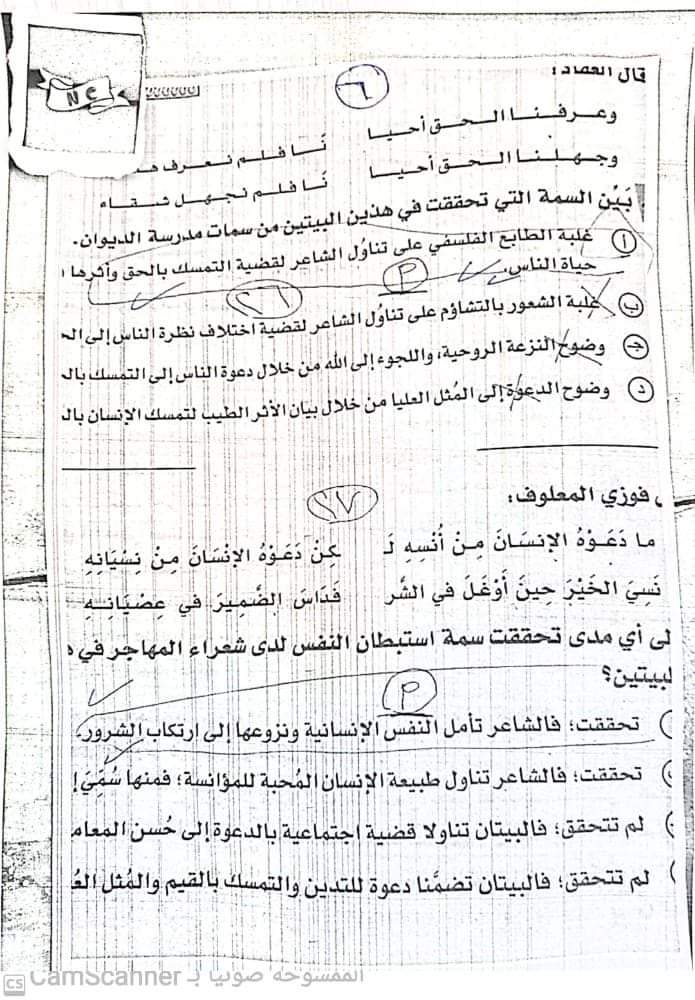 NC
٦
قال العقاد:
وعرفنا الحق أحيا نًا فلم نعرف
وجهلنا الحق أحيا نًا فلم نجهل شقاه
بَيِّن السمة التي تحققت في هذين البيتين من سمات مدرسة الديوان.
أ غلبة الطابع الفلسفي على تناوُل الشاعر لقضية التمسك بالحق وأثرها
حياة الناس.
م
٢٦
ب غلبة الشعور بالتشاؤم على تناوُل الشاعر لقضية اختلاف نظرة الناس إلى الح
جـ وضوح النزعة الروحية، واللجوء إلى الله من خلال دعوة الناس إلى التمسك بالح
د وضوح الدعوة إلى المُثل العليا من خلال بيان الأثر الطيب لتمسك الإنسان بال
٢٧
فوزي المعلوف:
ما دَعَوْهُ الإنسَانَ مِنْ أُنْسِهِ لَـ ـكِنْ دَعَوْهُ الإنْسَانَ مِنْ نِسْيَانِهِ
نَسِيَ الخَيْرَ حِينَ أَوْغَلَ في الشَّر فَدَاسَ الضَّمِيرَ في عِصْيَانِهِ
لى أي مدى تحققت سمة استبطان النفس لدى شعراء المهاجر في ه
لبيتين؟
م
تحققت؛ فالشاعر تأمل النفس الإنسانية ونزوعها إلى ارتكاب الشرور.
تحققت؛ فالشاعر تناول طبيعة الإنسان المُحبة للمؤانسة؛ فمنها سُمِّيَ إ
لم تتحقق؛ فالبيتان تناولا قضية اجتماعية بالدعوة إلى حُسن المعام
لم تتحقق؛ فالبيتان تضمَّنا دعوة للتدين والتمسك بالقيم والمُثل العُ
CS المفسوحة ضوئيا بـ CamScanner